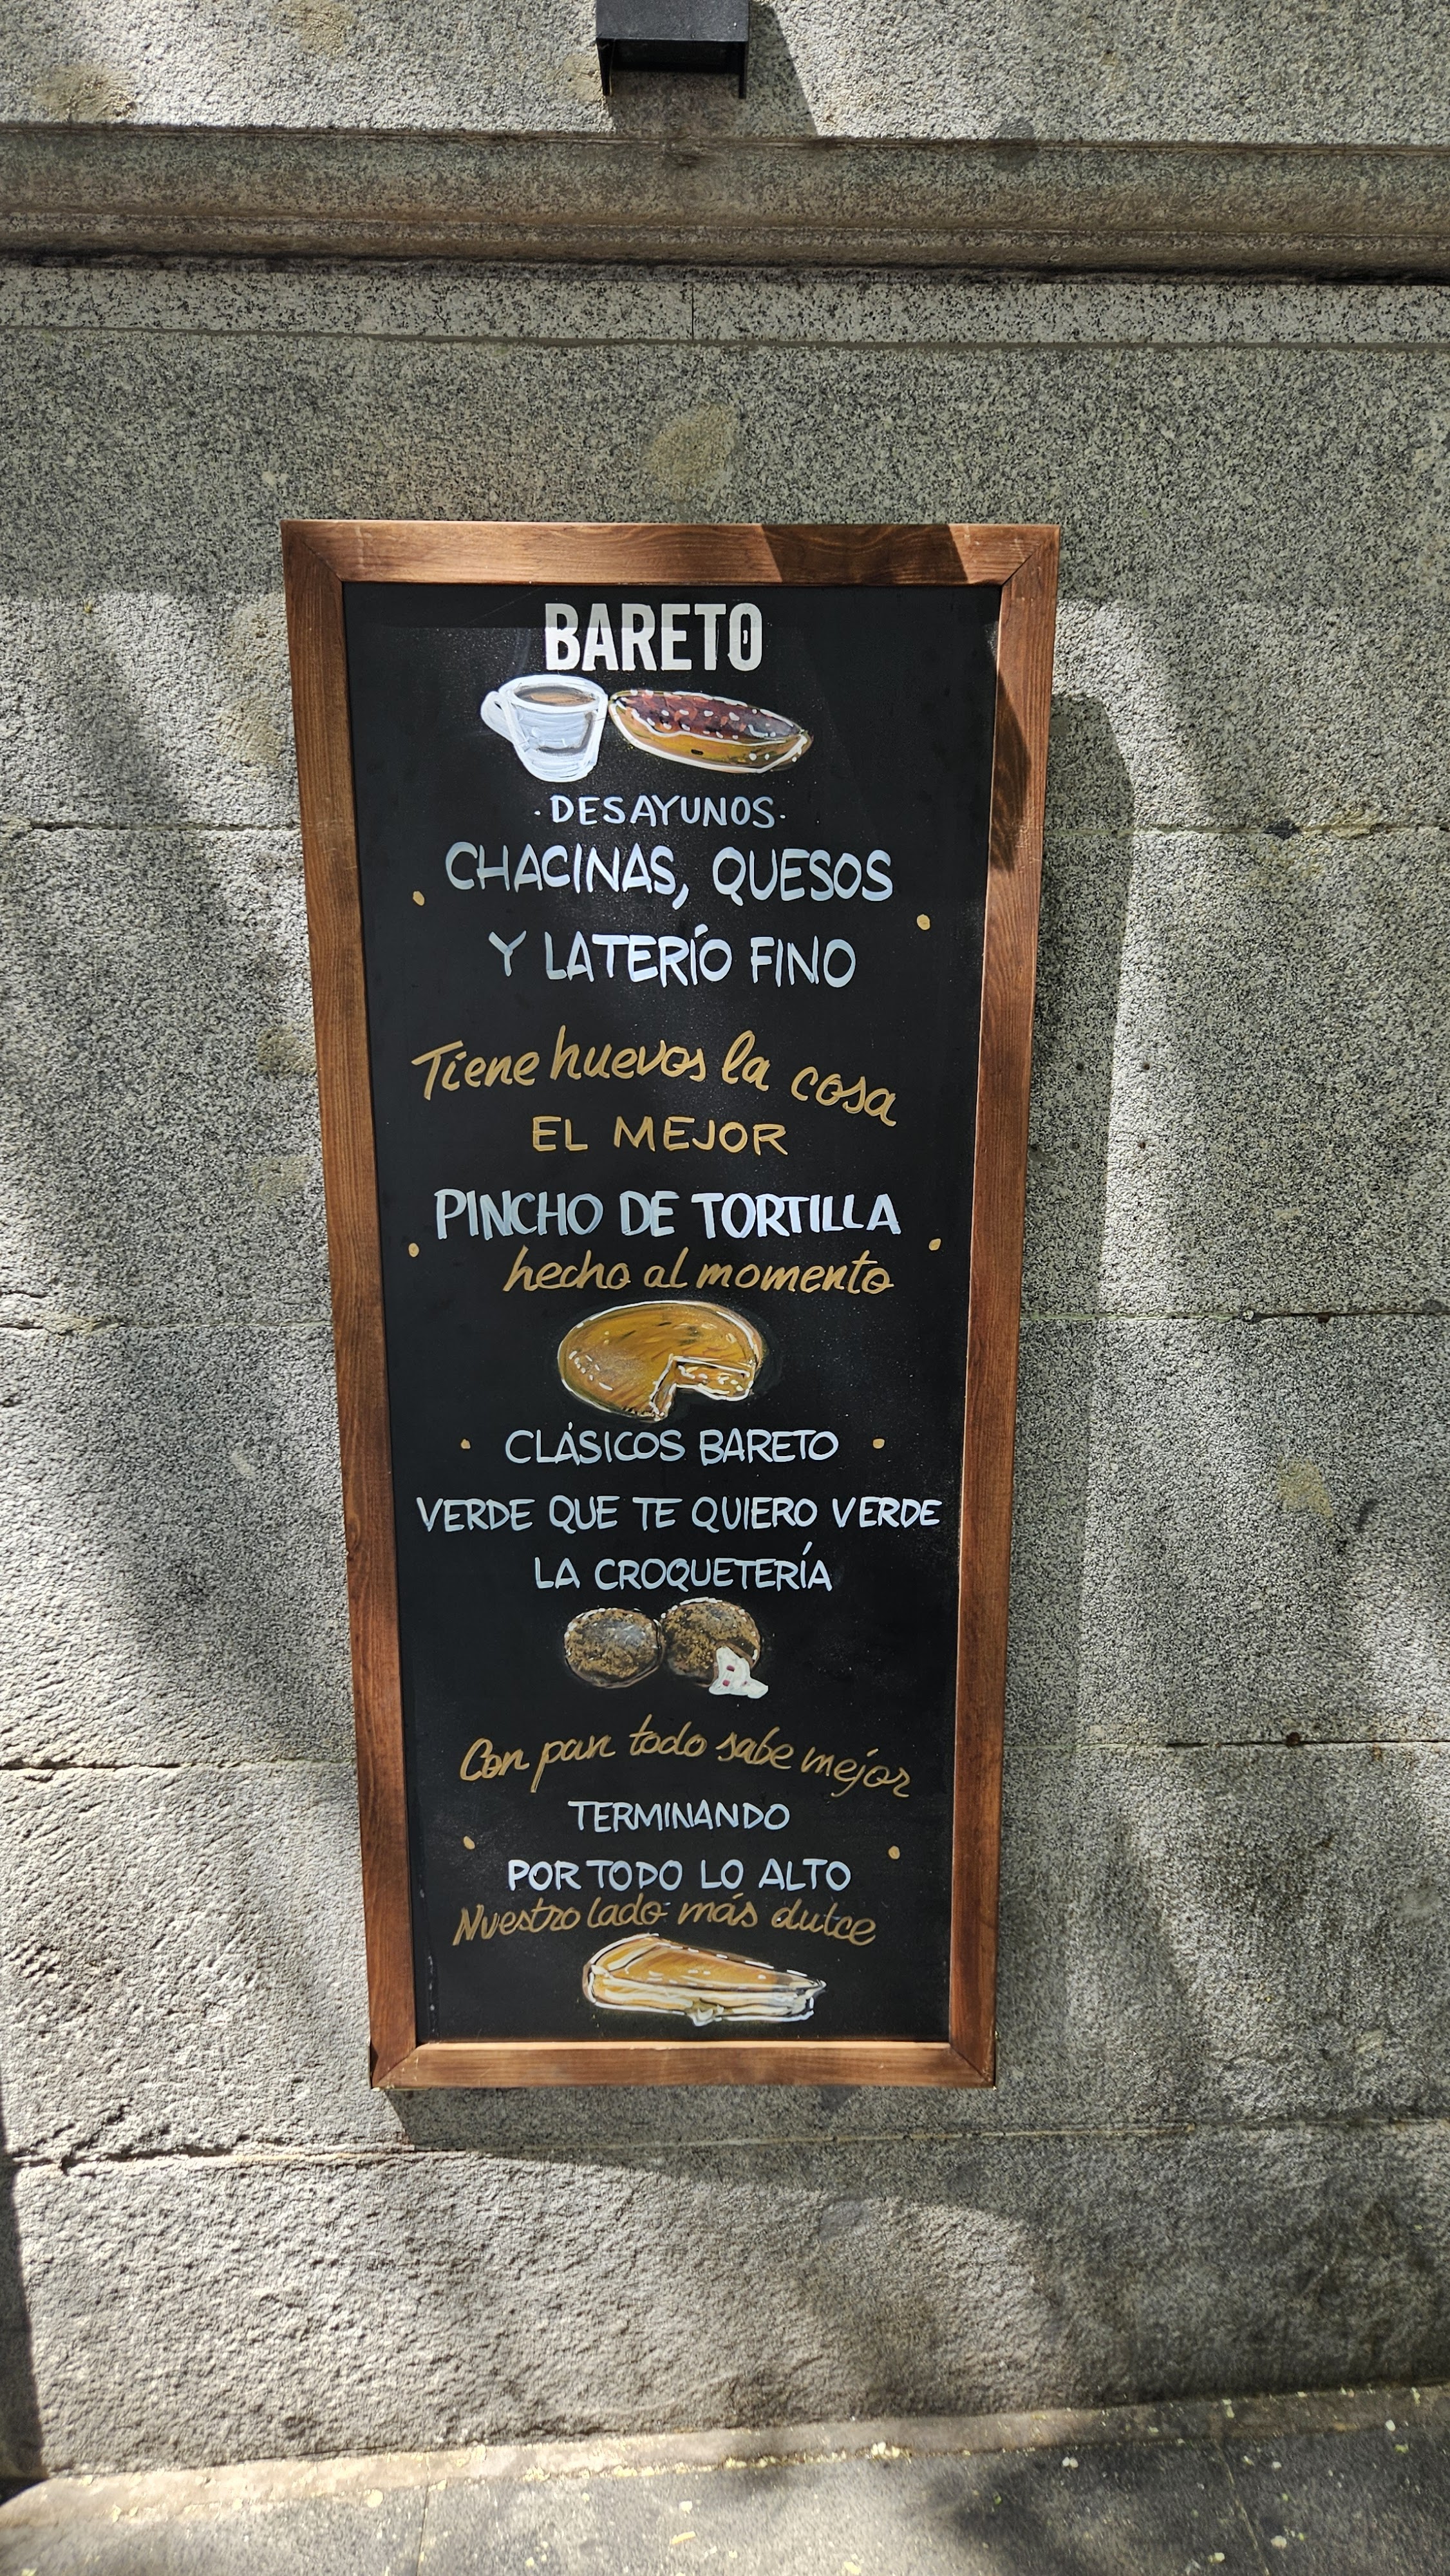 BARETO
·DESAYUNOS·
CHACINAS, QUESOS
Y LATERÍO FINO
Tiene huevos la cosa
EL MEJOR
PINCHO DE TORTILLA
hecho al momento
CLÁSICOS BARETO
VERDE QUE TE QUIERO VERDE
LA CROQUETERÍA
Con pan todo sabe mejor
TERMINANDO
POR TODO LO ALTO
Nuestro lado más dulce